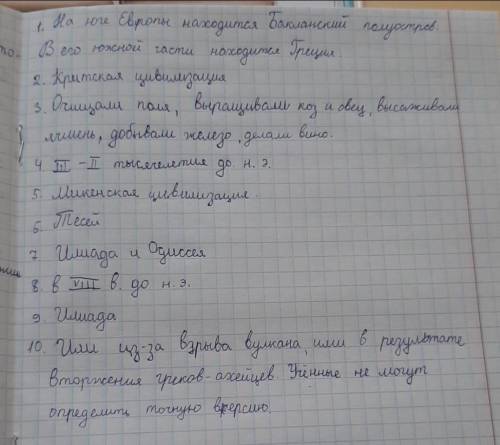 1. На юге Европы находится Бакланский полуостров.
В его южной части находится Греция.
2. Критская цивилизация
3. Очищали поля, выращивали коз и овец, высаживали
ячмень, добывали железо, делали вино.
4. III - II тысячелетия до н. э.
5. Микенская цивилизация.
6. Тесей
7. Илиада и Одиссея
8. в VIII в. до н. э.
9. Илиада
10. Или из-за взрыва вулкана, или в результате
вторжения греков-ахейцев. Учённые не могут
определить точную версию.